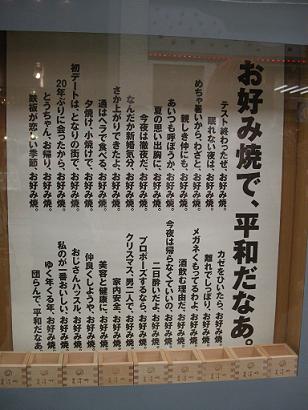 お好み焼で、平和だなあ。
テスト終わったぜ、お好み焼。
眠れない夜は、お好み焼。
めちゃ暑いから、わざと、お好み焼。
親しき仲にも、お好み焼。
あいつも呼ぼうか、お好み焼。
夏の思い出胸に、お好み焼。
今夜は徹夜だ、お好み焼。
なんだか新婚気分、お好み焼。
さか上がりできたよ、お好み焼。
通はヘラで食べる、お好み焼。
夕焼け、小焼けで、お好み焼。
初デートは、となりの街で、お好み焼。
20年ぶりに会ったから、お好み焼。
とうちゃん、お帰り、お好み焼。
鉄板が恋しい季節、お好み焼。
カゼをひいたら、お好み焼。
離れてしっぽり、お好み焼。
メガネくもってるわよ、お好み焼。
酒飲む理由だ、お好み焼。
今夜は帰らなくていいの、お好み焼。
二日酔いだよ、お好み焼。
プロポーズするなら、お好み焼。
クリスマス、男二人で、お好み焼。
家内安全、お好み焼。
美容と健康に、お好み焼。
仲良くしようや、お好み焼。
おじさんハッスル、お好み焼。
私のが一番おいしい、お好み焼。
ゆく年くる年、お好み焼。
団らんで、平和だなあ。